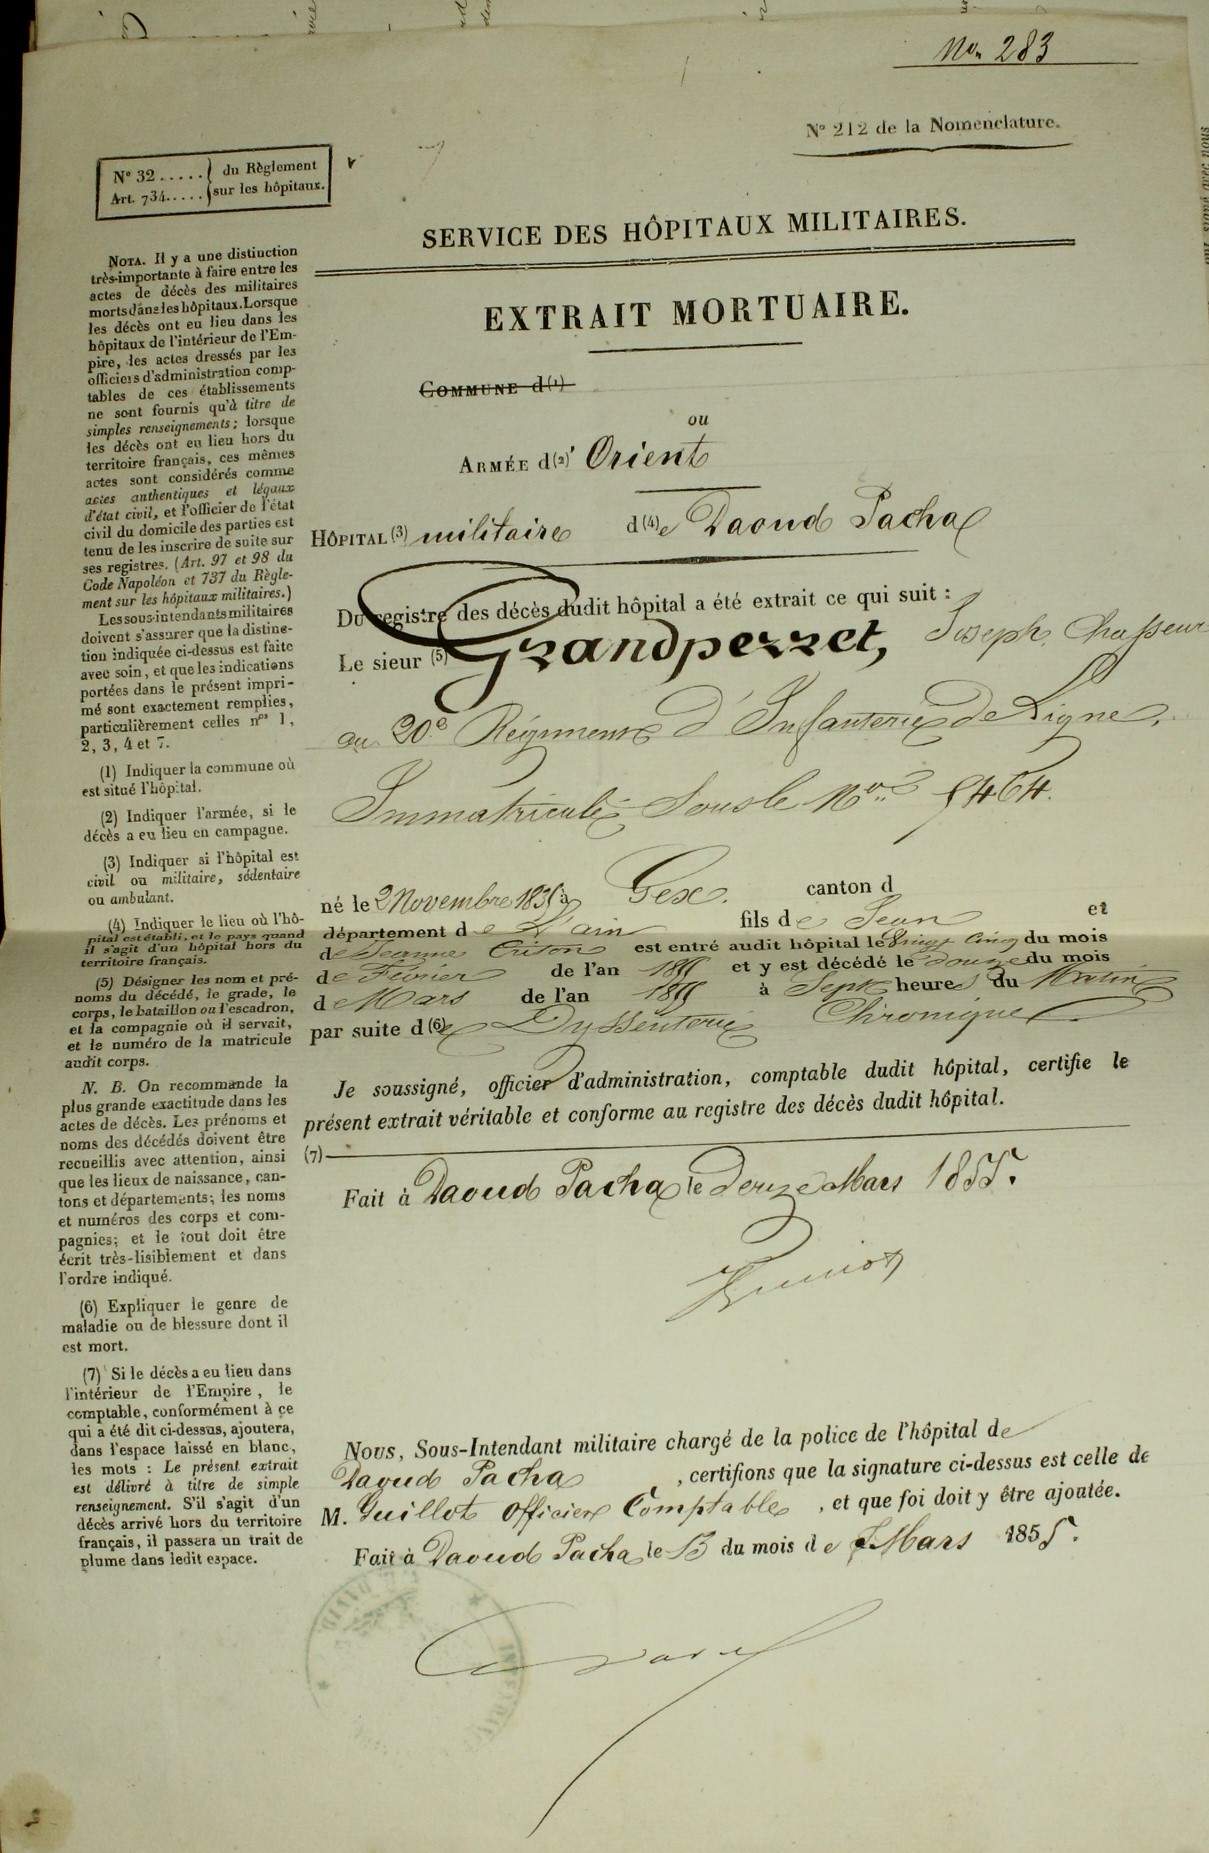 Non 283
N° 212 de la Nomenclature.
N° 32 ..... du Règlement
Art. 734..... sur les hôpitaux.
SERVICE DES HÔPITAUX MILITAIRES.
EXTRAIT MORTUAIRE.
COMMUNE d(1)
ou
ARMÉE d(2)' Orient
HÔPITAL (3) militaire d(4)e Daoud Pacha
Du registre des décès dudit hôpital a été extrait ce qui suit :
Le sieur (5) Grandperret, Joseph Chasseur
au 20e Régiment d'Infanterie de Ligne,
Immatriculé Sous le No 5464.
né le 2 Novembre 1835 à Gex. canton d
département de L'ain fils de Jean et
de Jeanne est entré audit hôpital le Vingt Cinq du mois
de Février de l'an 1855 et y est décédé le douze du mois
de Mars de l'an 1855 à Sept heures du Matin
par suite d(6)e Dyssenterie Chronique
Je soussigné, officier d'administration, comptable dudit hôpital, certifie le
présent extrait véritable et conforme au registre des décès dudit hôpital.
(7)
Fait à Daoud Pacha le douze Mars 1855.
Nous, Sous-Intendant militaire chargé de la police de l'hôpital de
Daoud Pacha , certifions que la signature ci-dessus est celle de
M. Guillot officier Comptable , et que foi doit y être ajoutée.
Fait à Daoud Pacha le 13 du mois de Mars 1855.
NOTA. Il y a une distinction
très-importante à faire entre les
actes de décès des militaires
morts dans les hôpitaux. Lorsque
les décès ont eu lieu dans les
hôpitaux de l'intérieur de l'Em-
pire, les actes dressés par les
officiers d'administration comp-
tables de ces établissements
ne sont fournis qu'à titre de
simples renseignements; lorsque
les décès ont eu lieu hors du
territoire français, ces mêmes
actes sont considérés comme
actes authentiques et légaux
d'état civil, et l'officier de l'état
civil du domicile des parties est
tenu de les inscrire de suite sur
ses registres. (Art. 97 et 98 du
Code Napoléon et 737 du Règle-
ment sur les hôpitaux militaires.)
Les sous-intendants militaires
doivent s'assurer que la distinc-
tion indiquée ci-dessus est faite
avec soin, et que les indications
portées dans le présent impri-
mé sont exactement remplies,
particulièrement celles nos 1,
2, 3, 4 et 7.
(1) Indiquer la commune où
est situé l'hôpital.
(2) Indiquer l'armée, si le
décès a eu lieu en campagne.
(3) Indiquer si l'hôpital est
civil ou militaire, sédentaire
ou ambulant.
(4) Indiquer le lieu où l'hô-
pital est établi, et le pays quand
il s'agit d'un hôpital hors du
territoire français.
(5) Désigner les nom et pré-
noms du décédé, le grade, le
corps, le bataillon ou l'escadron,
et la compagnie où il servait,
et le numéro de la matricule
audit corps.
N. B. On recommande la
plus grande exactitude dans les
actes de décès. Les prénoms et
noms des décédés doivent être
recueillis avec attention, ainsi
que les lieux de naissance, can-
tons et départements; les noms
et numéros des corps et com-
pagnies; et le tout doit être
écrit très-lisiblement et dans
l'ordre indiqué.
(6) Expliquer le genre de
maladie ou de blessure dont il
est mort.
(7) Si le décès a eu lieu dans
l'intérieur de l'Empire, le
comptable, conformément à ce
qui a été dit ci-dessus, ajoutera,
dans l'espace laissé en blanc,
les mots : Le présent extrait
est délivré à titre de simple
renseignement. S'il s'agit d'un
décès arrivé hors du territoire
français, il passera un trait de
plume dans ledit espace.